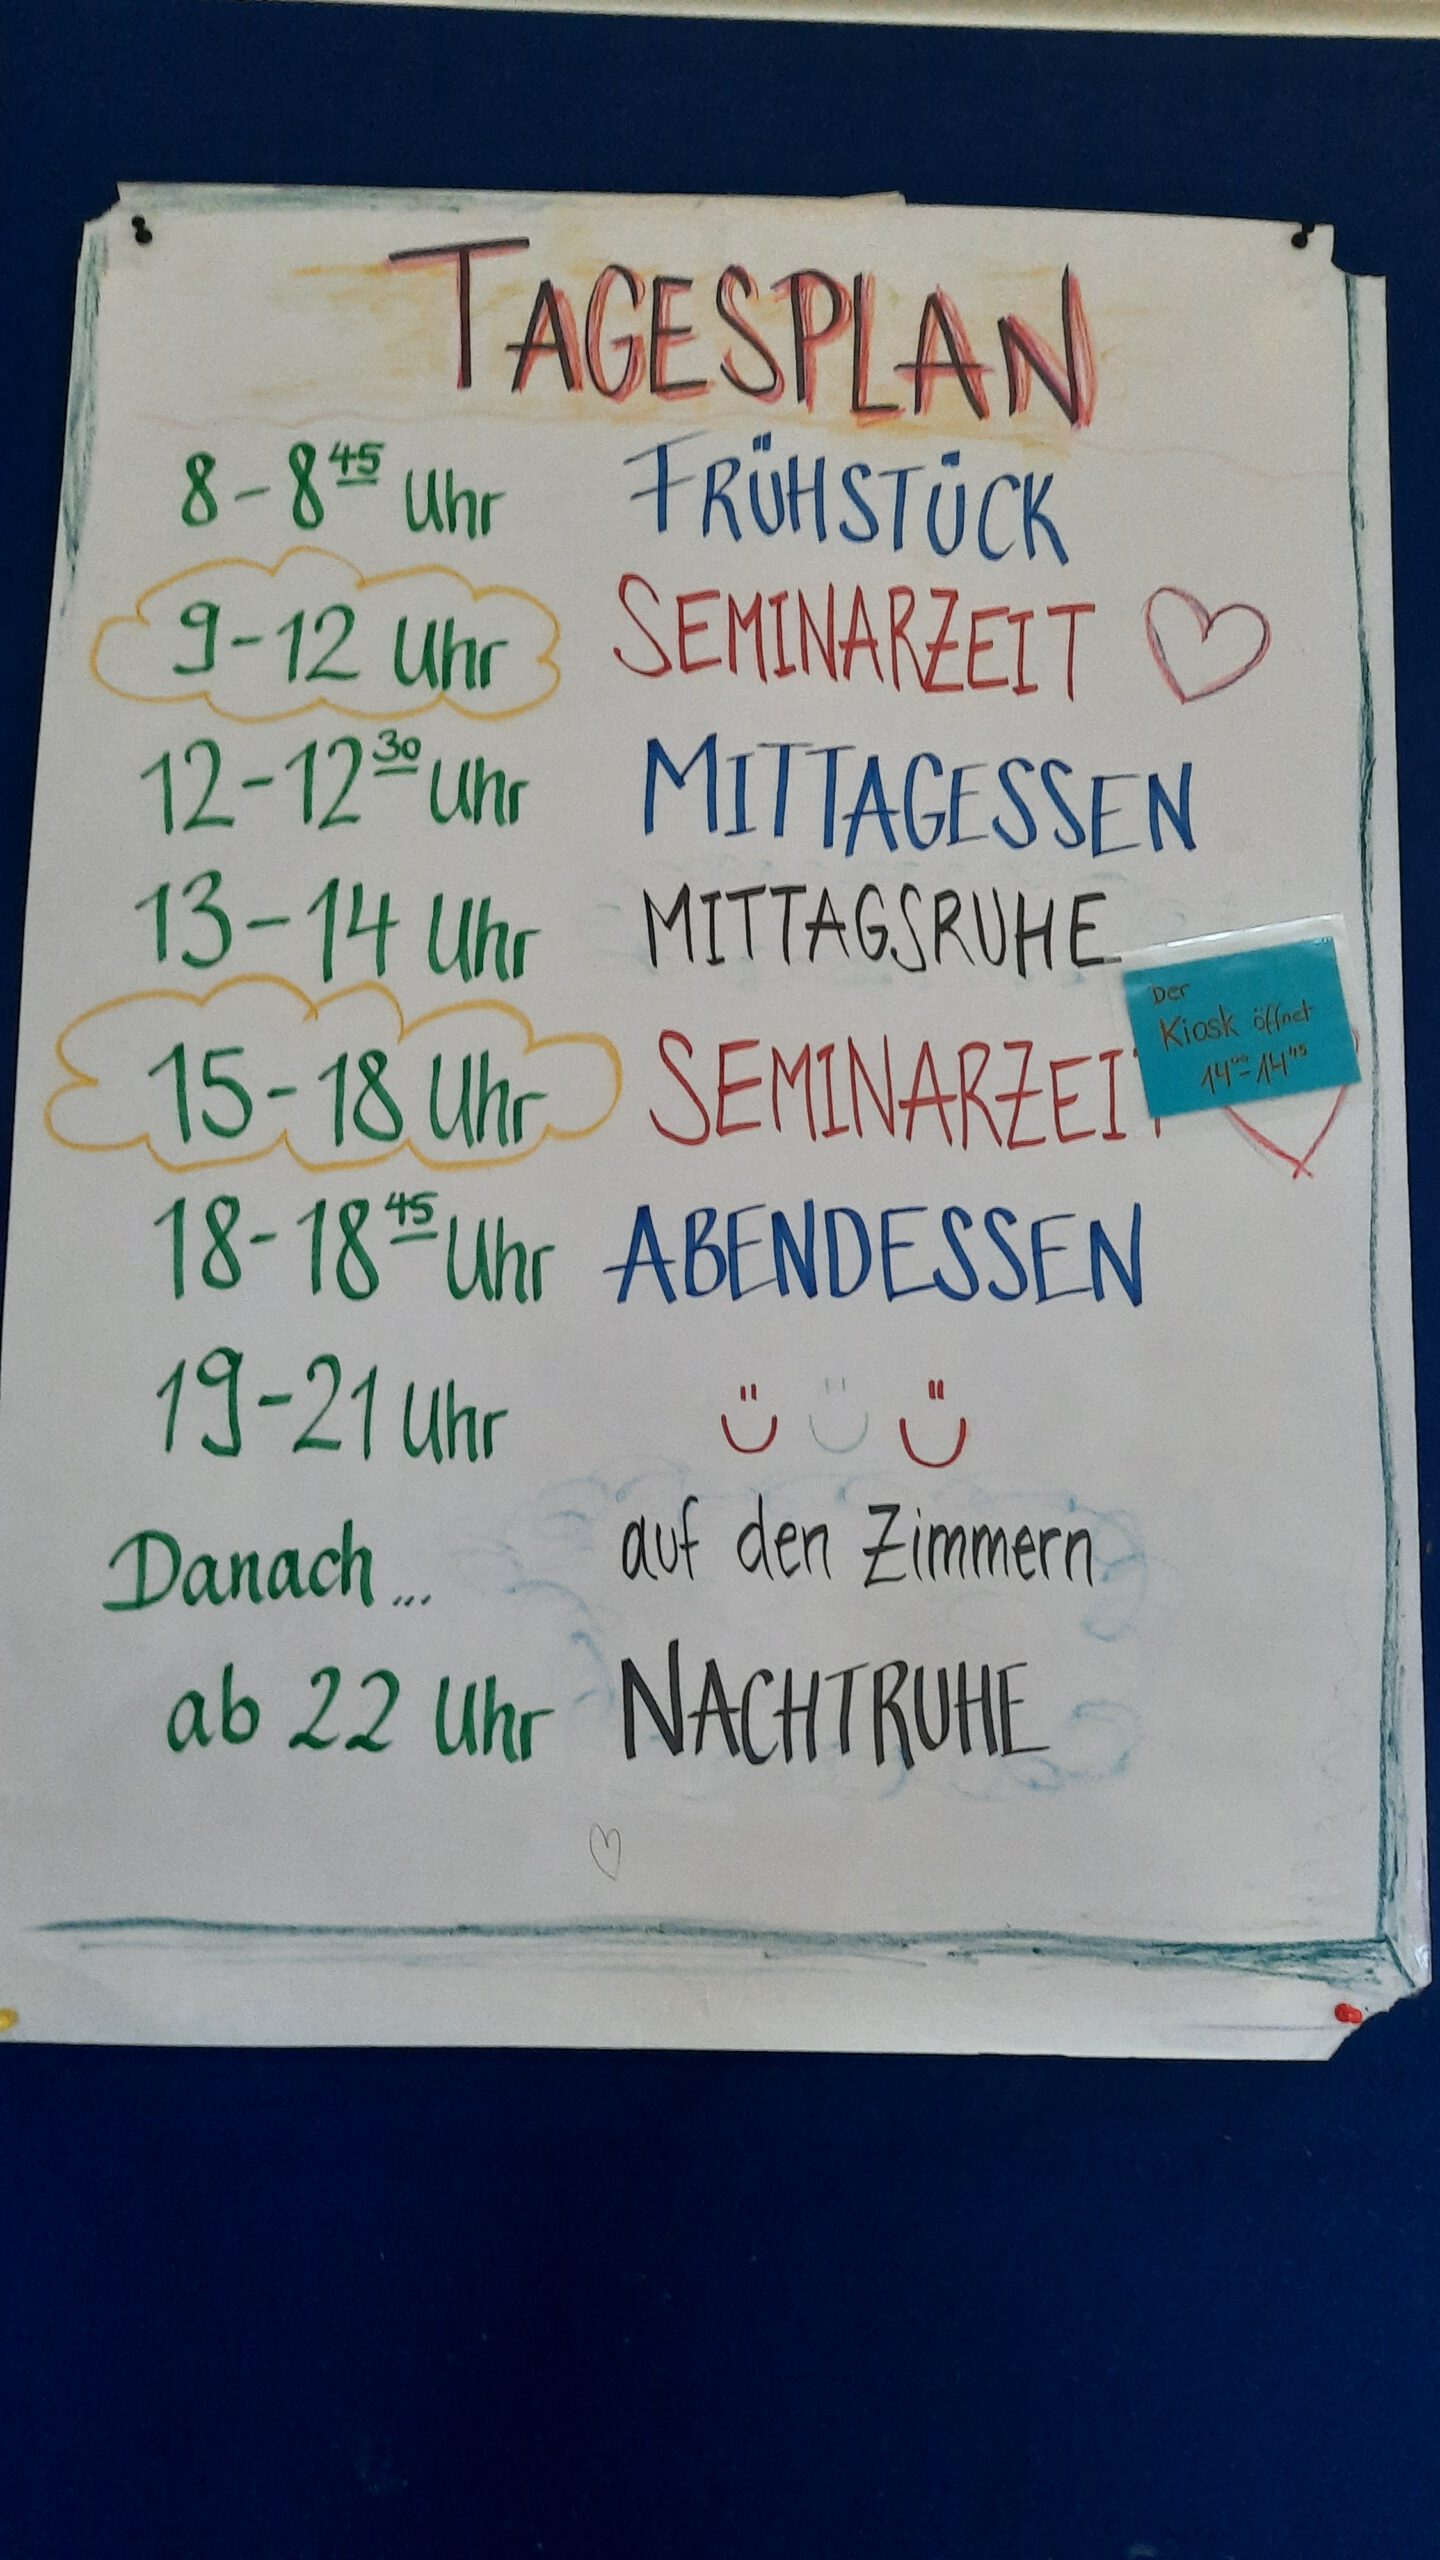 TAGESPLAN
8-8⁴⁵ Uhr FRÜHSTÜCK
9-12 Uhr SEMINARZEIT
12-12³⁰ Uhr MITTAGESSEN
13-14 Uhr MITTAGSRUHE
Der
Kiosk öffnet
14⁰⁰-14⁴⁵
15-18 Uhr SEMINARZEIT
18-18⁴⁵ Uhr ABENDESSEN
19-21 Uhr
Danach... auf den Zimmern
ab 22 Uhr NACHTRUHE